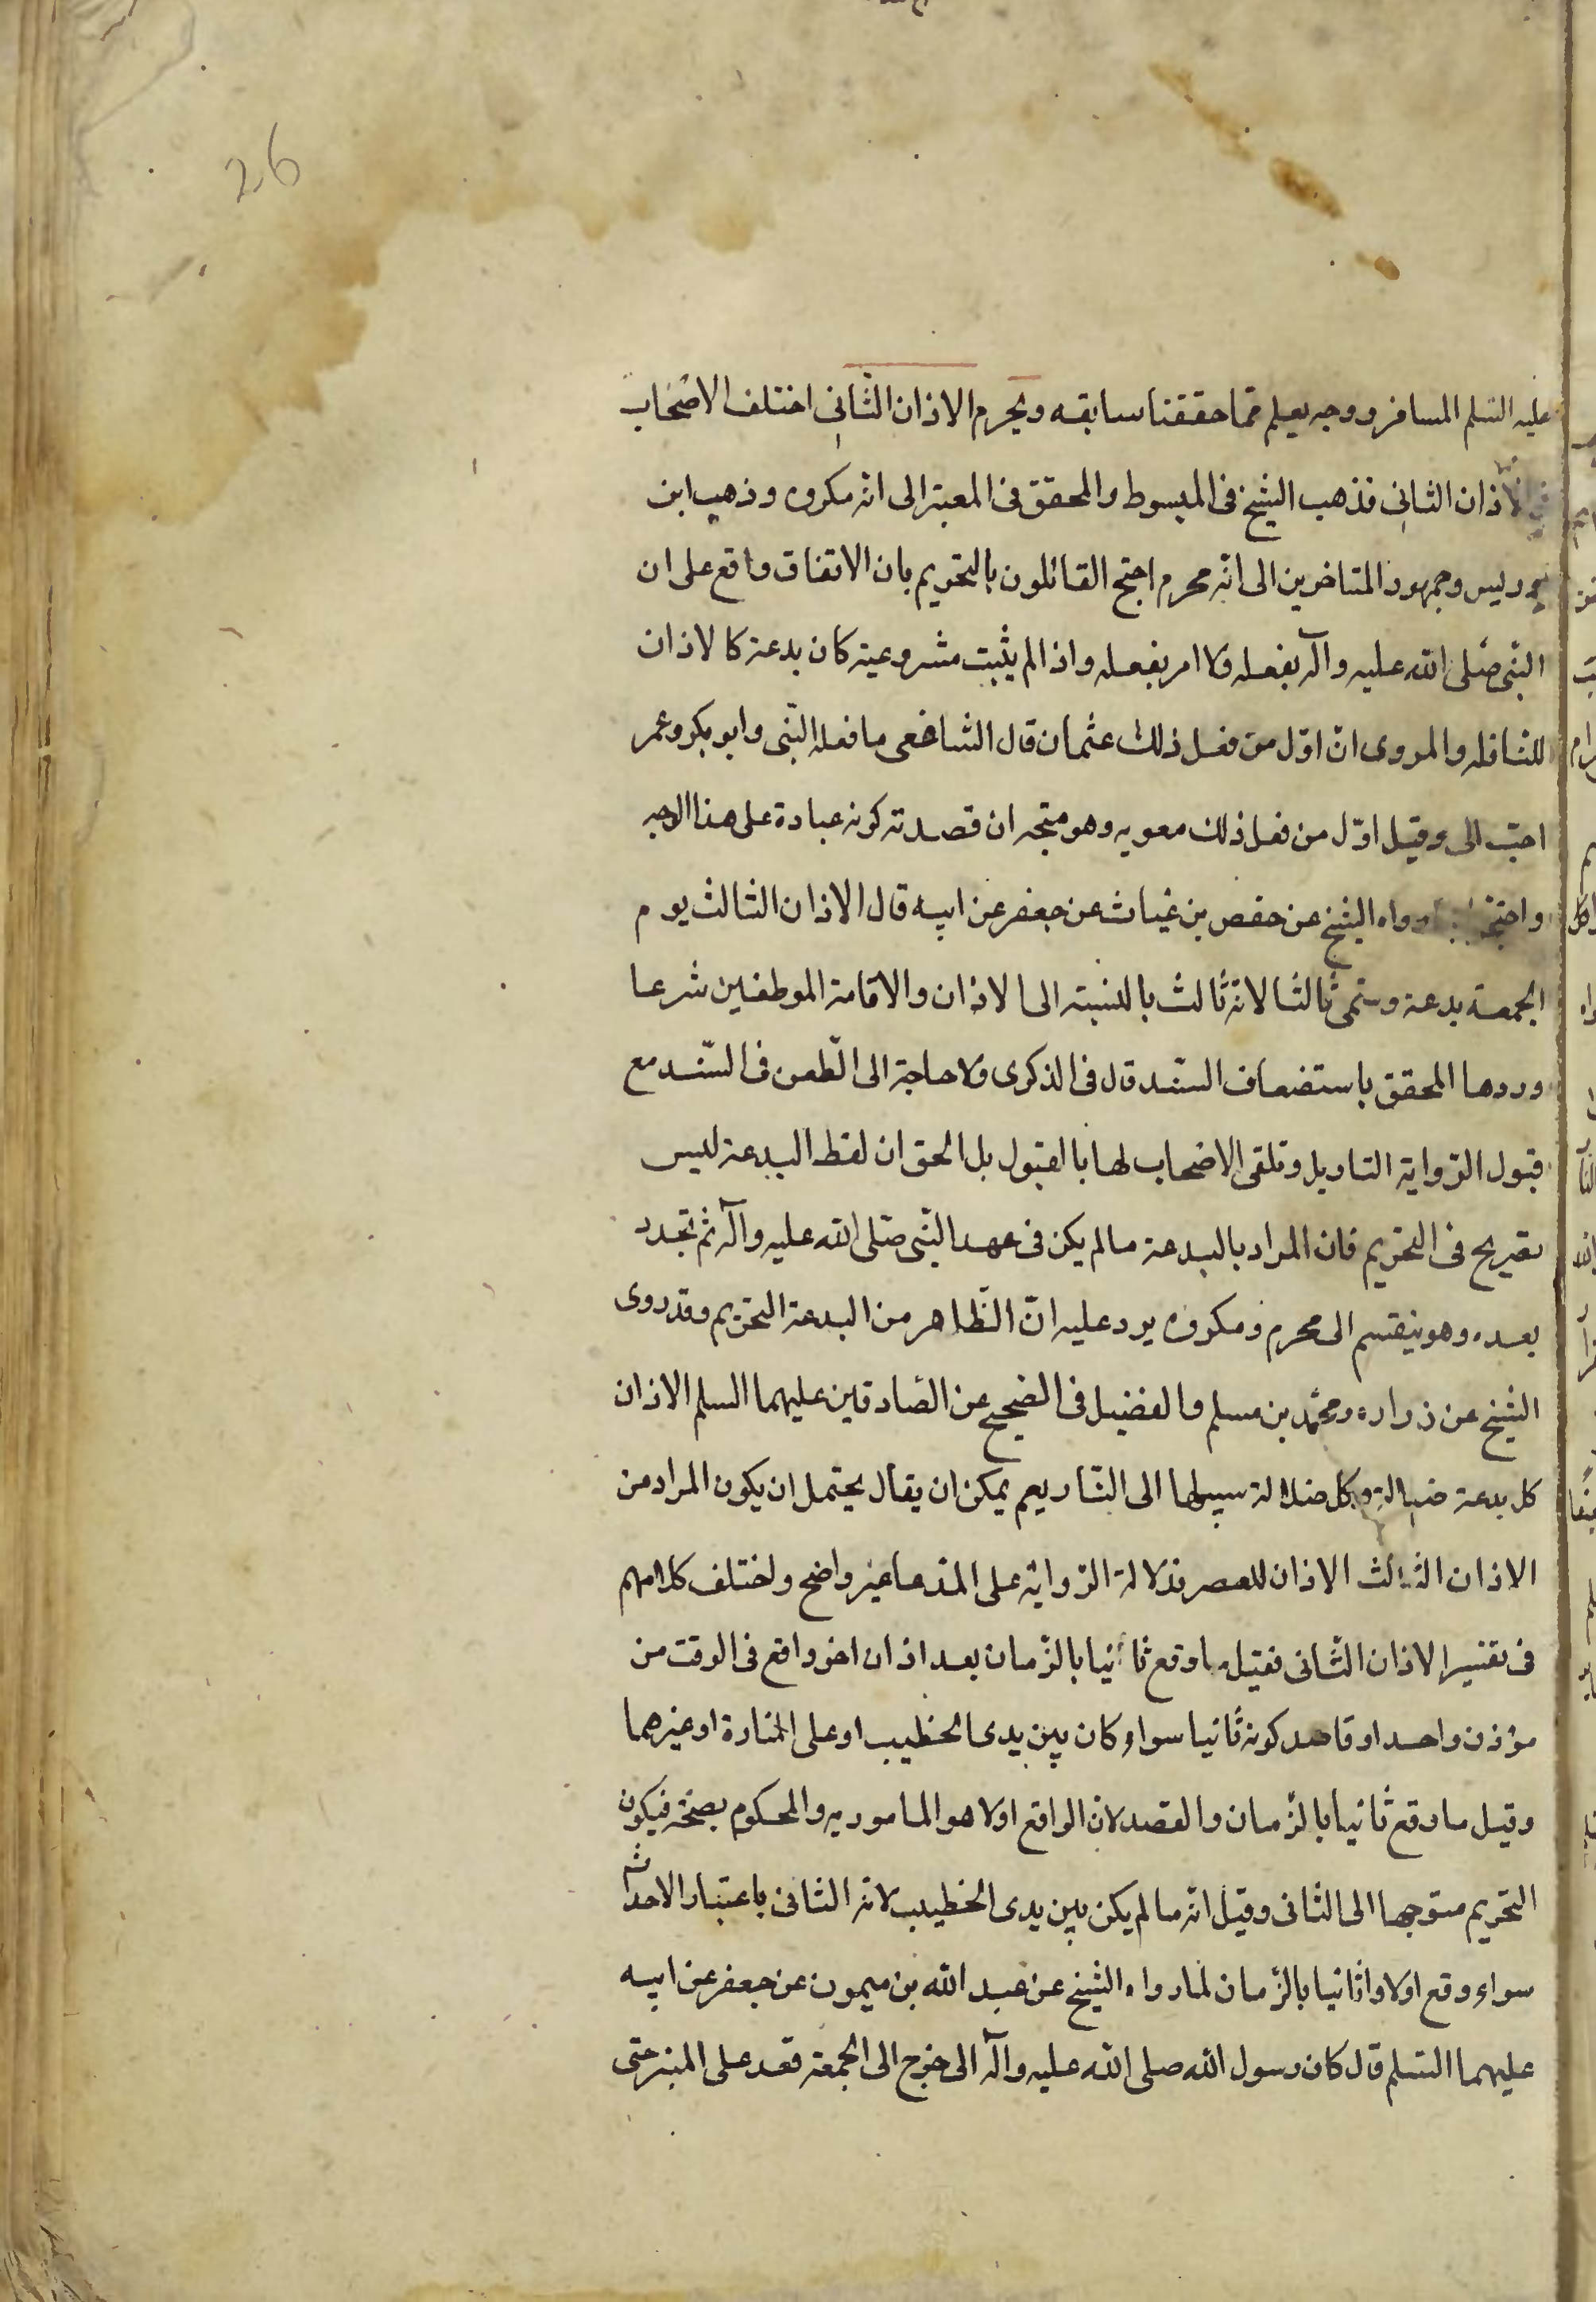 26
عليه السلم المسافر ووجه يعلم مما حققنا سابقه ويحرم الاذان الثانى اختلف الاصحاب
فى الاذان الثانى فذهب الشيخ فى المبسوط والمحقق فى المعتبر الى انه مكروه وذهب ابن
ادريس وجمهور المتاخرين الى انه محرم احتج القائلون بالتحريم بان الاتفاق واقع على ان
النبى صلى الله عليه وآله يفعله ولا امر بفعله واذا لم يثبت مشروعيته كان بدعة كالاذان
للنافله والمروى ان اول من فعل ذلك عثمان قال الشافعى ما فعله النبى وابو بكر وعمر
احب الى وقيل اول من فعل ذلك معويه وهو متجه ان قصدته كونه عبادة على هذا الوجه
واحتج رواه الشيخ عن حفص بن غياث عن جعفر عن ابيه قال الاذان الثالث يوم
الجمعة بدعة وسمى ثالثا لانه ثالث بالنسبته الى الاذان والاقامة الموظفين شرعا
وردها المحقق باستضعاف السند قال فى الذكرى ولا حاجة الى الطعن فى السند مع
قبول الرواية التاويل وتلقى الاصحاب لها بالقبول بل الحق ان لفظ البدعة ليس
بصريح فى التحريم فان المراد بالبدعة ما لم يكن فى عهد النبى صلى الله عليه وآله ثم تجدد
بعده وهو ينقسم الى محرم ومكروه يرد عليه ان الظاهر من البدعة التحريم وقد روى
الشيخ عن زراره ومحمد بن مسلم والفضيل فى الصحيح عن الصادقين عليهما السلم الاذان
كل بدعة ضلالة وكل ضلالة سبيلها الى النار يعم يمكن ان يقال يحتمل ان يكون المراد من
الاذان الثالث الاذان للعصر فدلالة الرواية على المدعا غير واضح واختلف كلامهم
فى تفسير الاذان الثانى فقيل ما وقع ثانيا بالزمان بعد اذان اخر واقع فى الوقت من
مؤذن واحد او قاصد كونه ثانيا سواء كان بين يدى الخطيب او على المنارة او غيرهما
وقيل ما وقع ثانيا بالزمان والقصد لان الواقع اولا هو المامور به والمحكوم بصحته فيكون
التحريم متوجها الى الثانى وقيل انه ما لم يكن بين يدى الخطيب لانه الثانى باعتبار الاحداث
سواء وقع اولا واثانيا بالزمان لما رواه الشيخ عن عبد الله بن ميمون عن جعفر عن ابيه
عليهما السلم قال كان رسول الله صلى الله عليه وآله الى خرج الى الجمعة قعد على المنبر حتى